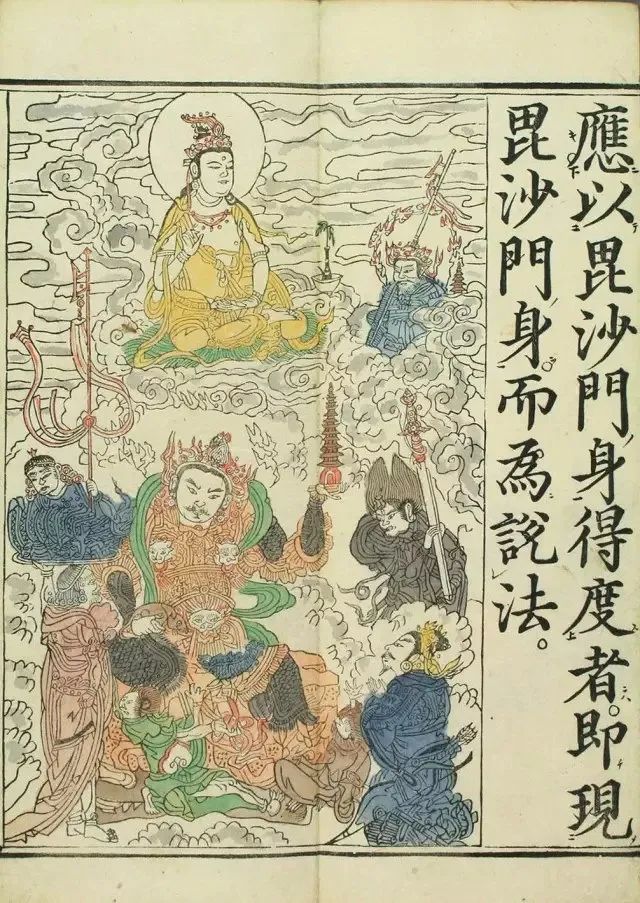 應以毘沙門身得度者。即現
毘沙門身而為說法。